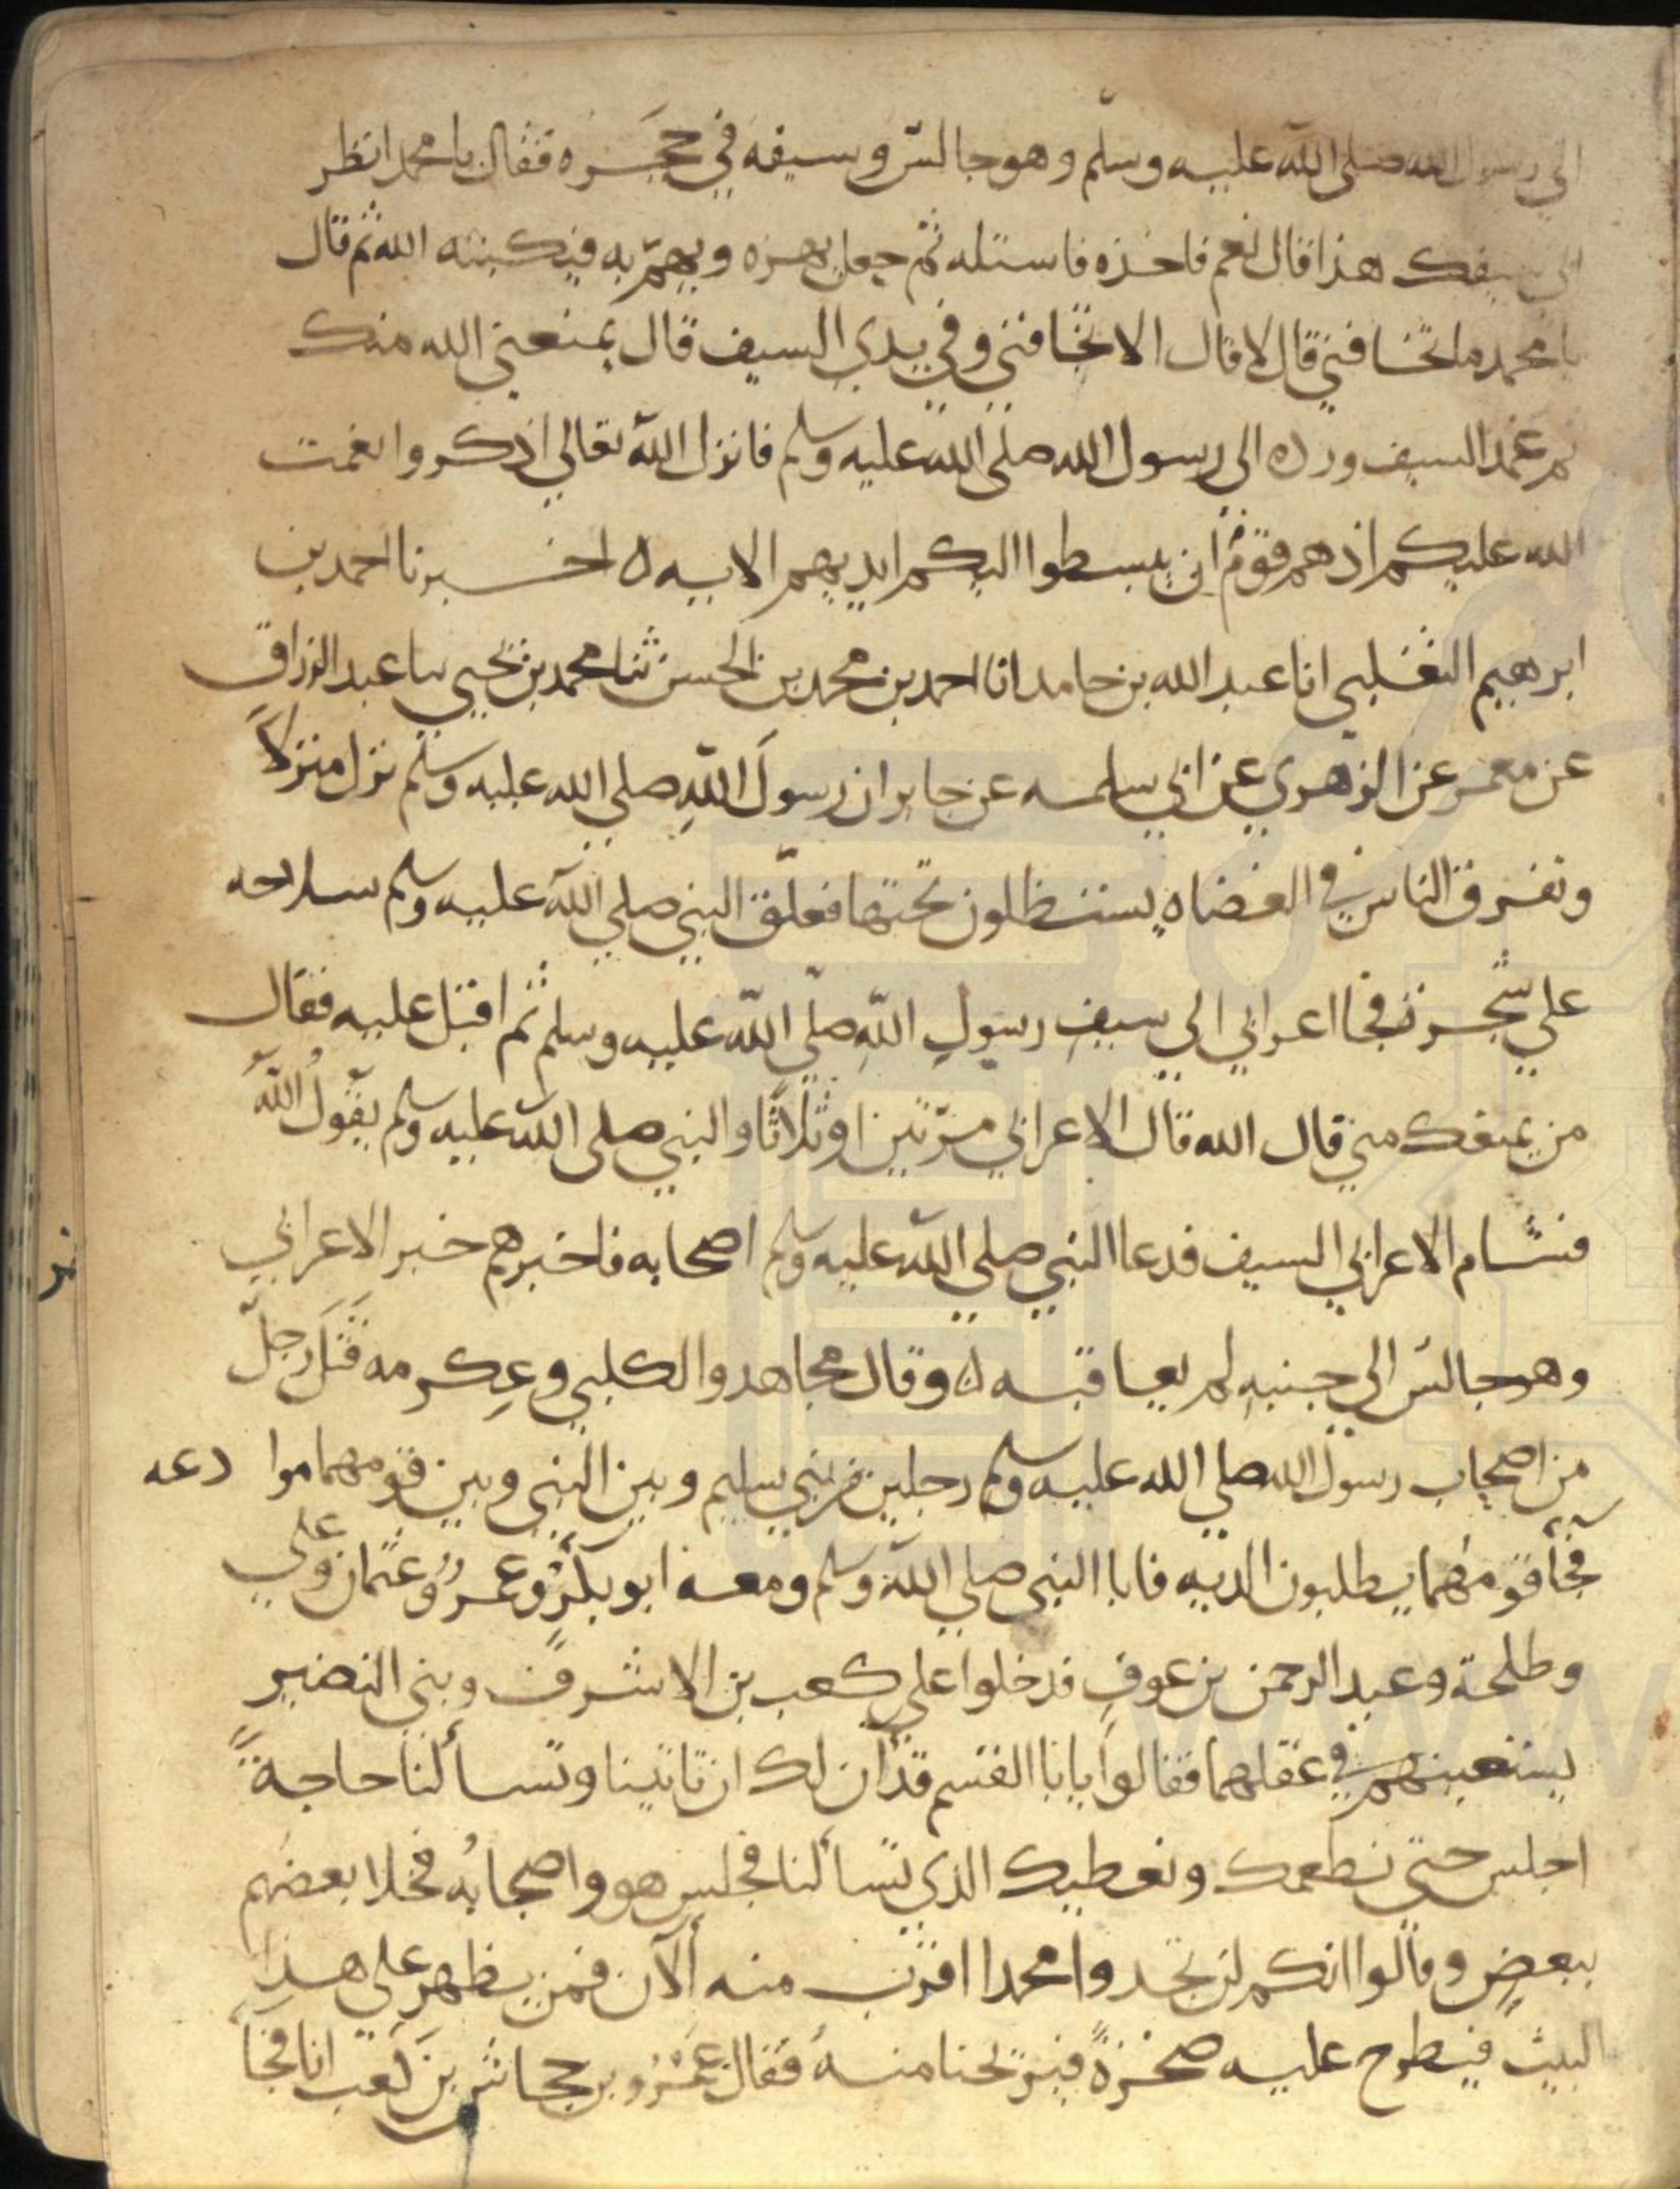 الي رسول الله صلى الله عليه وسلم وهو جالسٌ وسيفه في حجره فقال يا محمد انظر
الي سيفك هذا قال نعم فاخذه فاستله ثم جعل يهزه ويهمّ به فيكبته الله ثم قال
يا محمد ما تخافني قال لا قال الا تخافني وفي يدي السيف قال يمنعني الله منك
ثم غمد السيف ورده الي رسول الله صلى الله عليه وسلم فانزل الله تعالي اذكروا نعمت
الله عليكم اذ هم قومٌ ان يبسطوا اليكم ايديهم الايه ه اخــبرنا احمد بن
ابرهيم الثعلبي انا عبد الله بن حامد انا احمد بن محمد بن الحسن ثنا محمد بن يحيي ثنا عبد الرزاق
عن معمر عن الزهري عن ابي سلمه عن جابر ان رسولَ اللهِ صلي الله عليه وسلم نزل منزلاً
وتفرق الناس في العضاه يستظلون تحتها فعلّق النبي صلي الله عليه وسلم سلاحه
علي شجرة فجا اعرابي الي سيفِ رسولِ اللهِ صلّي الله عليه وسلم ثم اقبل عليه فقال
من يمنعك مني قال الله قال الاعرابي مرّتين او ثلاثًا والنبي صلى الله عليه وسلم يقولُ اللهُ
فشام الاعرابي السيف فدعا النبي صلي الله عليه وسلم اصحابه فاخبرهم خبر الاعرابي
وهو جالسٌ الي جنبهِ لم يعاقبه ه وقال مجاهد والكلبي وعِكرمه قَتَلَ رجلٌ
من اصحاب رسول الله صلي الله عليه وسلم رجلين من بني سليم وبين النبي وبين قومهما موا دعه
فجآ قومُهما يطلبون الديه فاتا النبي صلي الله وسلم ومعه ابو بكرٍ وعمرُ وعثمان وعلي
وطلحة وعبد الرحمن بن عوفٍ فدخلوا علي كعب بن الاشرف وبني النضير
يستعينهم في عقلهما فقالوا يا با القسم قد آن لك ان تاتينا وتسألنا حاجةً
اجلس حتي نطعمك ونعطيك الذي تسألنا فجلس هو واصحابُه فخلا بعضهم
ببعضٍ وقالوا انكم لن تجدوا محمدا اقرب منه الآن فمن يظهر على هذا
البيت فيطرح عليه صخرةً فيريحنا منه فقال عَمْرُو بن جحاش بن كعب انا فجآ